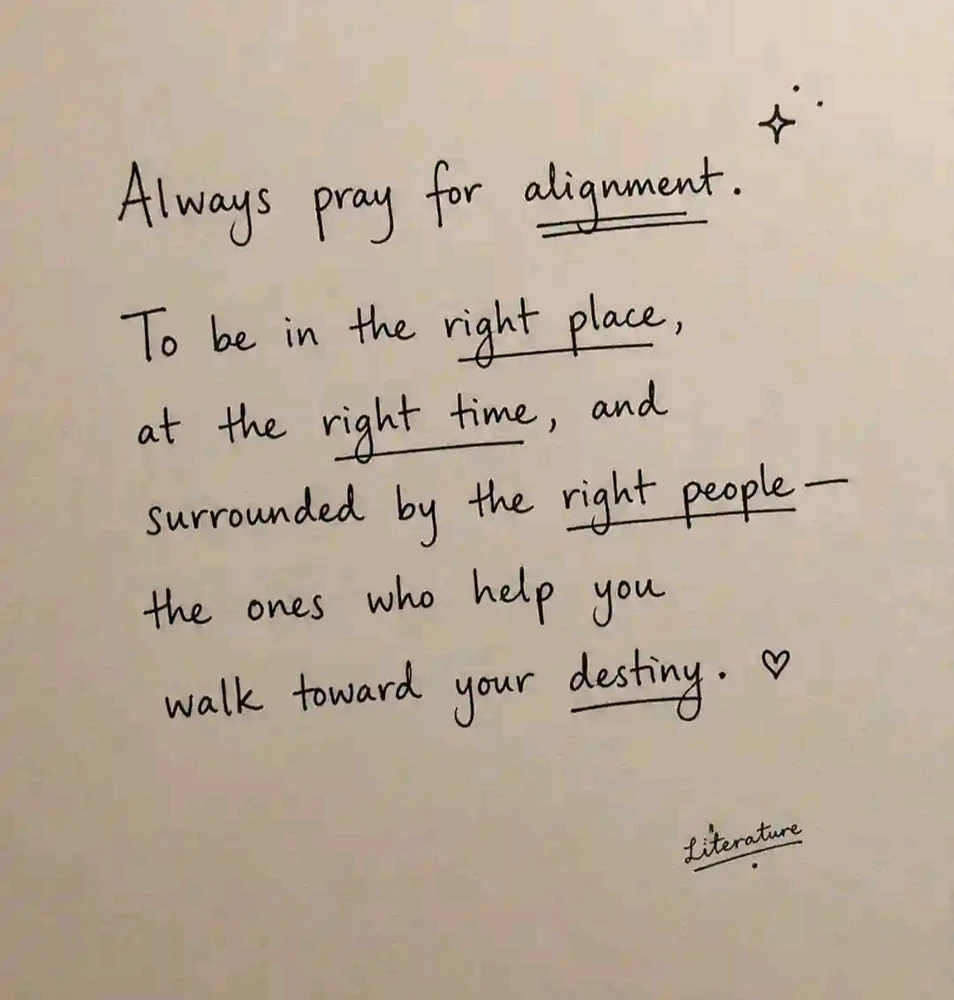 Always pray for alignment.
To be in the right place,
at the right time, and
surrounded by the right people—
the ones who help you
walk toward your destiny. ♡
Literature